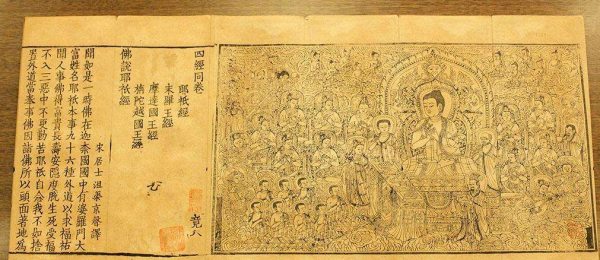 四經同卷
竟八
耶祇經
末羅王經
摩達國王經
旃陀越國王經
佛說耶祇經
宋居士沮渠京聲譯
聞如是一時佛在迦奈國國中有婆羅門大
富姓名耶祇本事九十六種外道以求福祐
聞人事佛得富貴長壽安隱度脫生死受福
不入三惡中不更勤苦耶祇自念我不如捨
置外道當奉事佛因詣佛所以頭面著地為